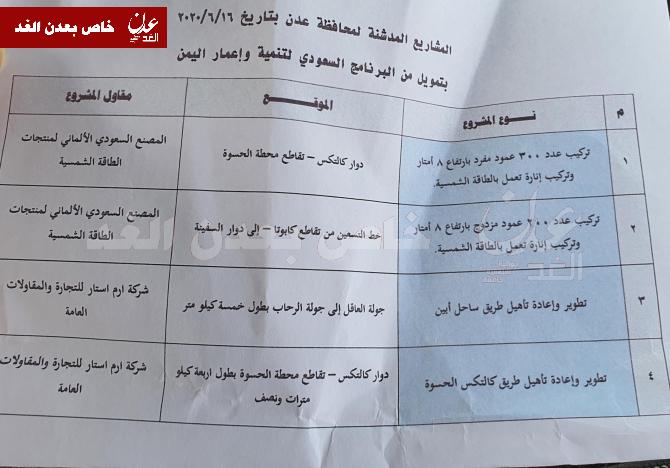 خاص بعدن الغد
عدن
الغد
المشاريع المدشنة لمحافظة عدن بتاريخ ٢٠٢٠/٦/١٦
بتمويل من البرنامج السعودي لتنمية وإعمار اليمن
م
نوع المشروع
الموقع
مقاول المشروع
١
تركيب عدد ٣٠٠ عمود مفرد بارتفاع ٨ أمتار
وتركيب إنارة تعمل بالطاقة الشمسية.
دوار كالتكس – تقاطع محطة الحسوة
المصنع السعودي الألماني لمنتجات
الطاقة الشمسية
٢
تركيب عدد ٢٠٠ عمود مزدوج بارتفاع ٨ أمتار
وتركيب إنارة تعمل بالطاقة الشمسية.
خط التسعين من تقاطع كابوتا – إلى دوار السفينة
المصنع السعودي الألماني لمنتجات
الطاقة الشمسية
خاص بعدن الغد
عدن
الغد
٣
تطوير وإعادة تأهيل طريق ساحل أبين
جولة العاقل إلى جولة الرحاب بطول خمسة كيلو متر
شركة ارم استار للتجارة والمقاولات
العامة
٤
تطوير وإعادة تأهيل طريق كالتكس الحسوة
دوار كالتكس – تقاطع محطة الحسوة بطول اربعة كيلو
مترات ونصف
شركة ارم استار للتجارة والمقاولات
العامة